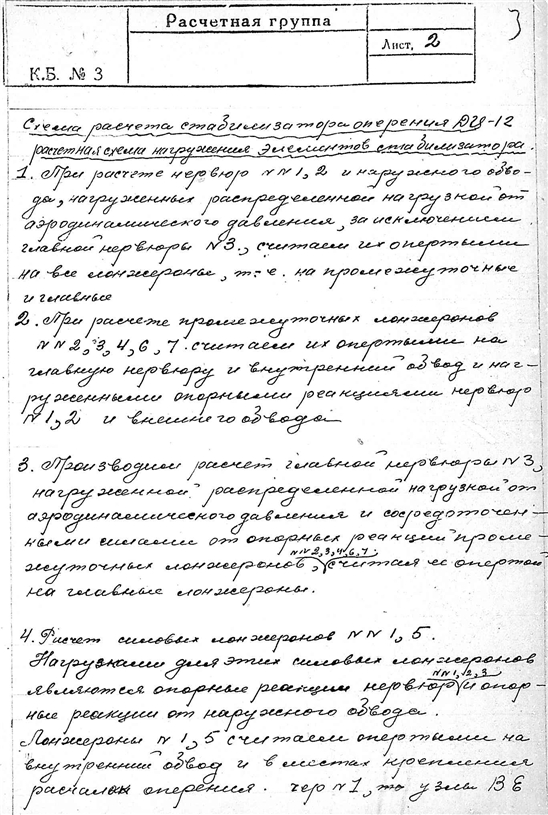 Расчетная группа
3
Лист, 2
К.Б. № 3
Схема расчета стабилизатора оперения ДЦ-12
расчетная схема нагружения элементов стабилизатора.
1. При расчете нервюр NN 1, 2 и наружного обво-
да, нагруженных распределенной нагрузкой от
аэродинамического давления, за исключением
главной нервюры N3., считаем их опертыми
на все лонжероны, т.-е. на промежуточные
и главные
2. При расчете промежуточных лонжеронов
NN 2, 3, 4, 6, 7. считаем их опертыми на
главную нервюру и внутренний обвод и наг-
руженными опорными реакциями нервюр
N 1, 2 и внешнего обвода
3. Производим расчет главной нервюры N3,
нагруженной распределенной нагрузкой от
аэродинамического давления и сосредоточен-
ными силами от опорных реакций проме-
NN 2, 3, 4, 6, 7.
жуточных лонжеронов, считая ее опертой
на главные лонжероны.
4. Расчет силовых лонжеронов NN 1, 5.
Нагрузками для этих силовых лонжеронов
NN 1, 2, 3
являются опорные реакции нервюр и опор-
ные реакции от наружного обвода.
Лонжероны N 1, 5 считаем опертыми на
внутренний обвод и в местах крепления
расчалок оперения. чер N1, то узлы В Е